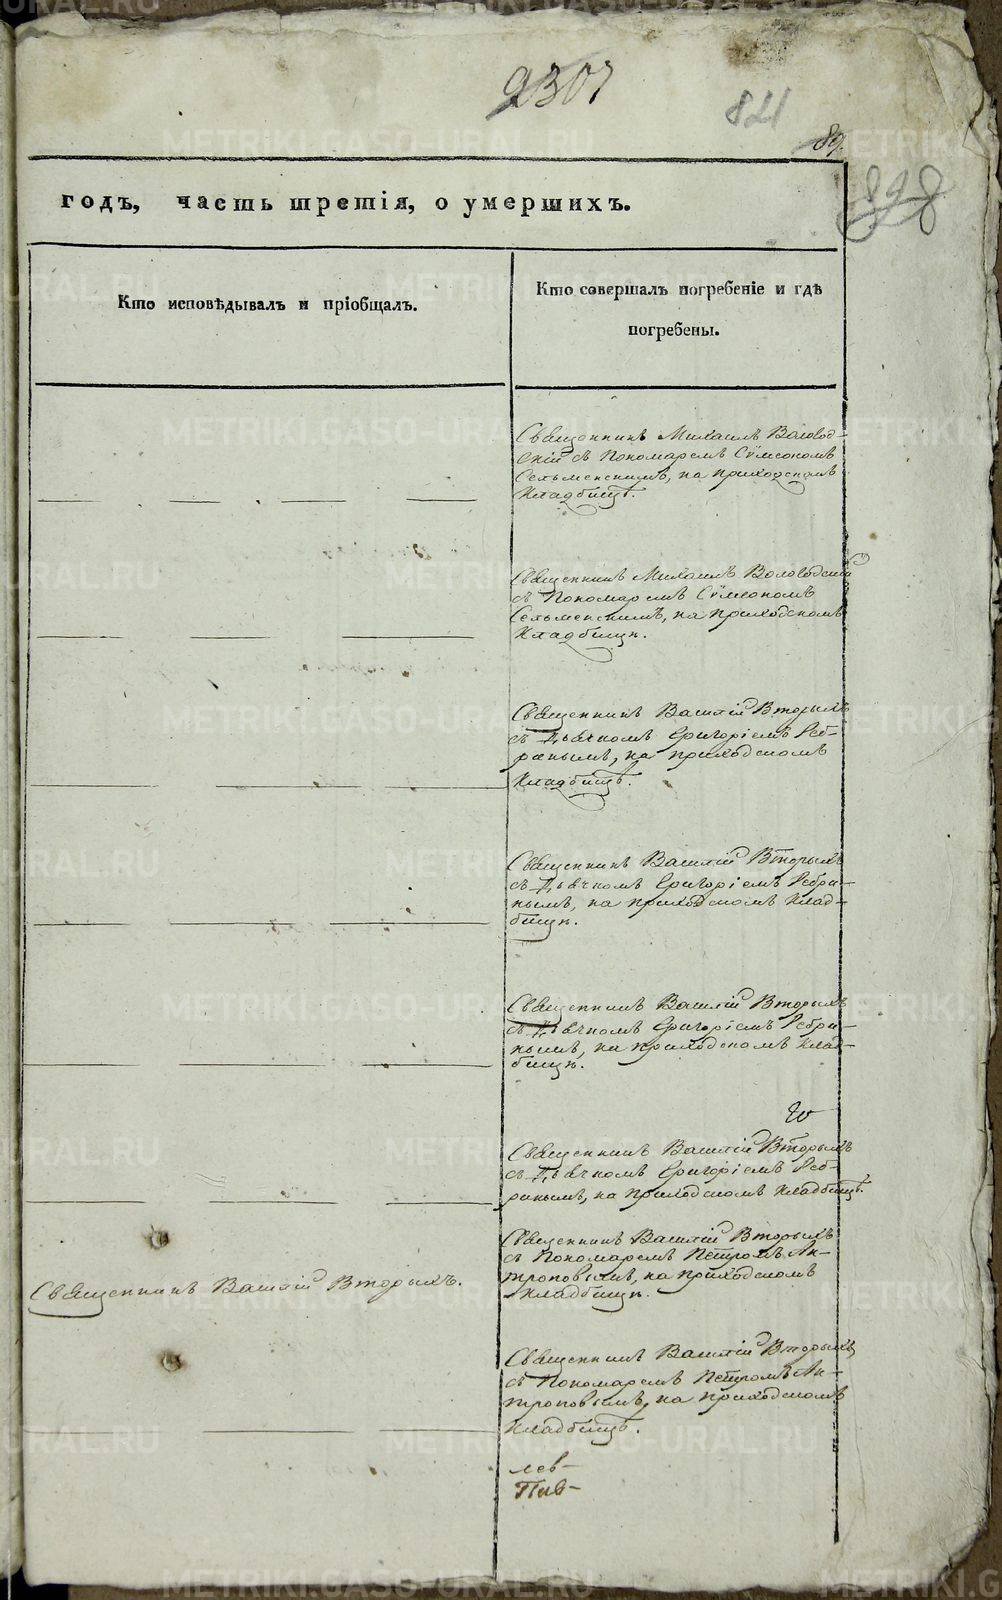 2307
821
89.
898
годъ, часть третія, о умершихъ.
Кто исповѣдывалъ и пріобщалъ.
Кто совершалъ погребеніе и гдѣ
погребены.
Священникъ Михаилъ Воловод-
скій съ Пономаремъ Сѵмеономъ
Сельменскимъ, на приходскомъ
кладбищѣ.
Священникъ Михаилъ Воловодскій
съ Пономаремъ Сѵмеономъ
Сельменскимъ, на приходскомъ
кладбищѣ.
Священникъ Василій Вторыхъ
съ Дьячкомъ Григоріемъ Реб-
ринымъ, на приходскомъ
кладбищѣ.
Священникъ Василій Вторыхъ
съ Дьячкомъ Григоріемъ Ребри-
нымъ, на приходскомъ клад-
бищѣ.
Священникъ Василій Вторыхъ
съ Дьячкомъ Григоріемъ Ребри-
нымъ, на приходскомъ клад-
бищѣ.
Священникъ Василій Вторыхъ
съ Дьячкомъ Григоріемъ Реб-
ринымъ, на приходскомъ кладбищѣ.
Священникъ Василій Вторыхъ.
Священникъ Василій Вторыхъ
съ Пономаремъ Петромъ Ан-
троповымъ, на приходскомъ
кладбищѣ.
Священникъ Василій Вторыхъ
съ Пономаремъ Петромъ Ан-
троповымъ, на приходскомъ
кладбищѣ.
лев-
METRIKI.GASO-URAL.RU